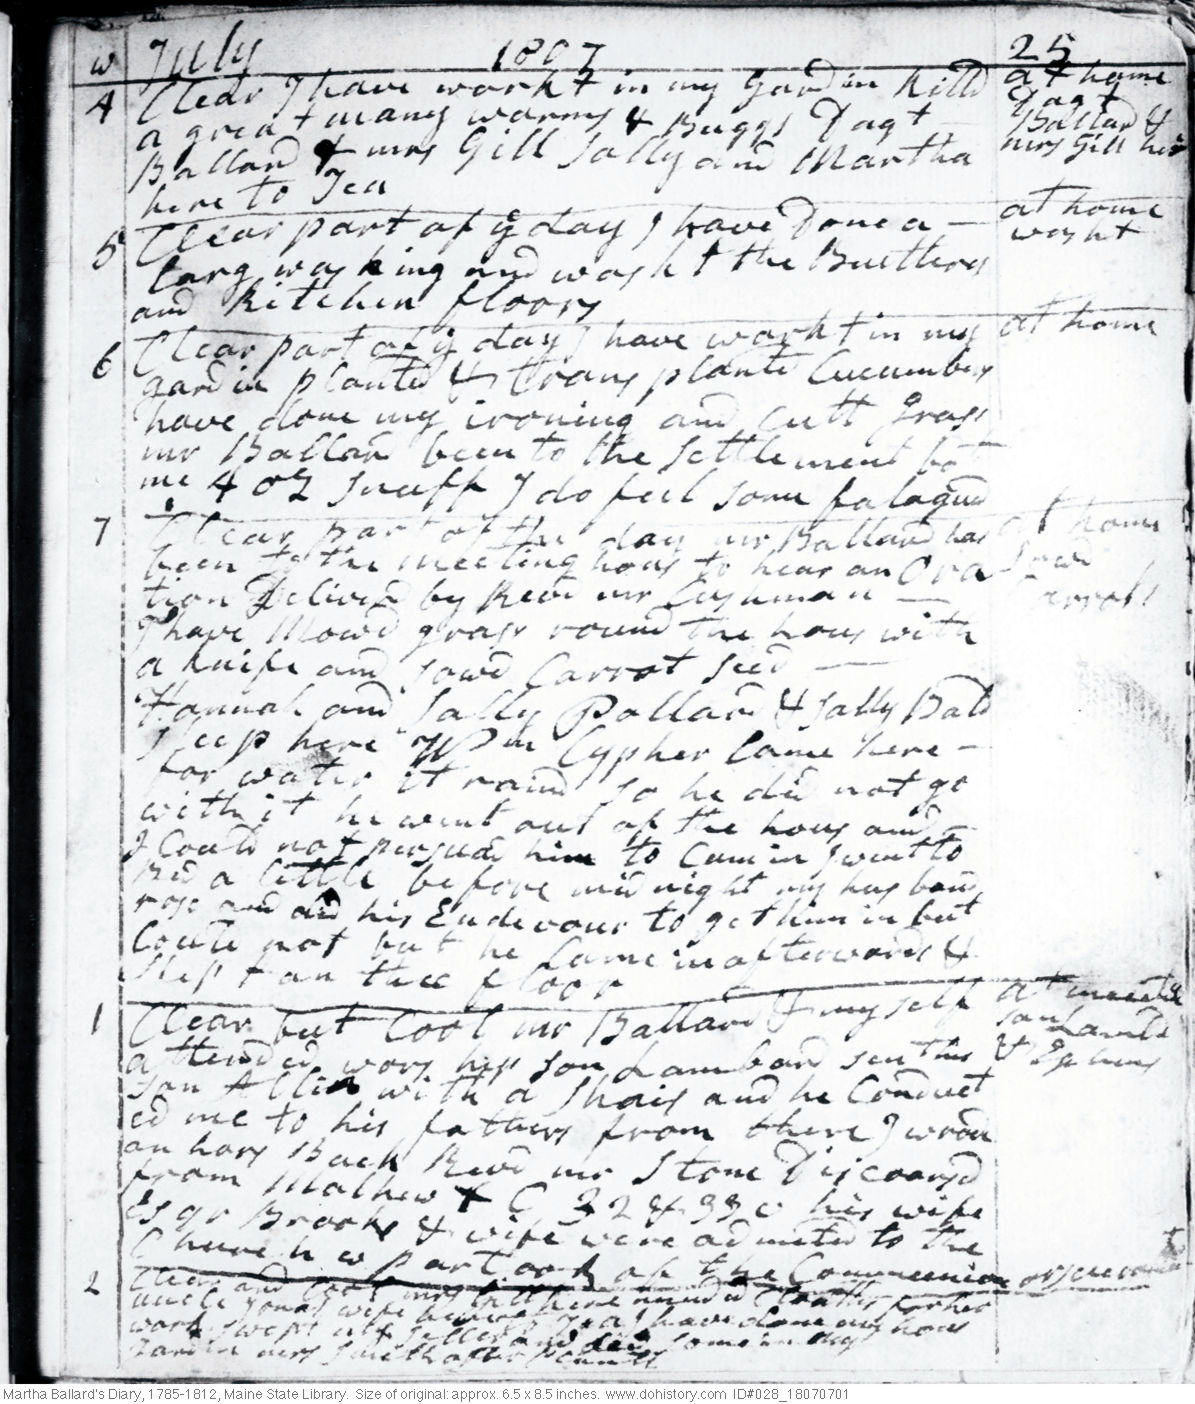 w July 1807 25
4 Clear I have workt in my gardin killd at home
a great many warms & Buggs Dagt Dagt
Ballard & mrs Gill Sally and Martha Ballard &
here to Tea mrs Gill her
5 Clear part of ÿ day I have Done a – at home
larg washing and washt the Buttery washt
and kitchen floors
6 Clear part of ÿ day I have workt in my at home
gardin planted & transplantd Cucumbers
have done my ironing and cutt grass
mr Ballard been to the Settlement bot
me 4 oz snuff I do feel some fatagud
7 Clear part of the day mr Ballard has at home
been to the meeting hous to hear an Ora Sowd
tion Delived by Revd mr Cushman – Carrots
I have Mowd grass round the hous with
a knife and sowd Carrot seed —
Hannah and Sally Pollard & Sally Balld
sleep here Wm Cypher Came here –
for water it raind so he did not go
with it he went out of the hous and –
I Could not persuad him to Cum in I went to
Bed a little before midnight my husband
rose and did his Endevour to get him in but
Could not but he Came in afterwards &
slept on thee floor
1 Clear but Cool mr Ballard & my self at meeting
attended worship son Lambard sent his son Lambds
son Allin with a Shais and he Conduct &
ed me to his fathers from there I wrode
on hors Back Revd mr Stone Discoarsd
from Mathew C 32 & 33 v his wife
Esqr Brooks & wife were admited to the
Church w partook of the Communion
2 Clear and Cool mrs Gill here
uncle Jonas wife have done my hous
work swept my seller and did some in my
Gardin mrs Smith
Martha Ballard's Diary, 1785-1812, Maine State Library. Size of original: approx. 6.5 x 8.5 inches. www.dohistory.com ID#028_18070701